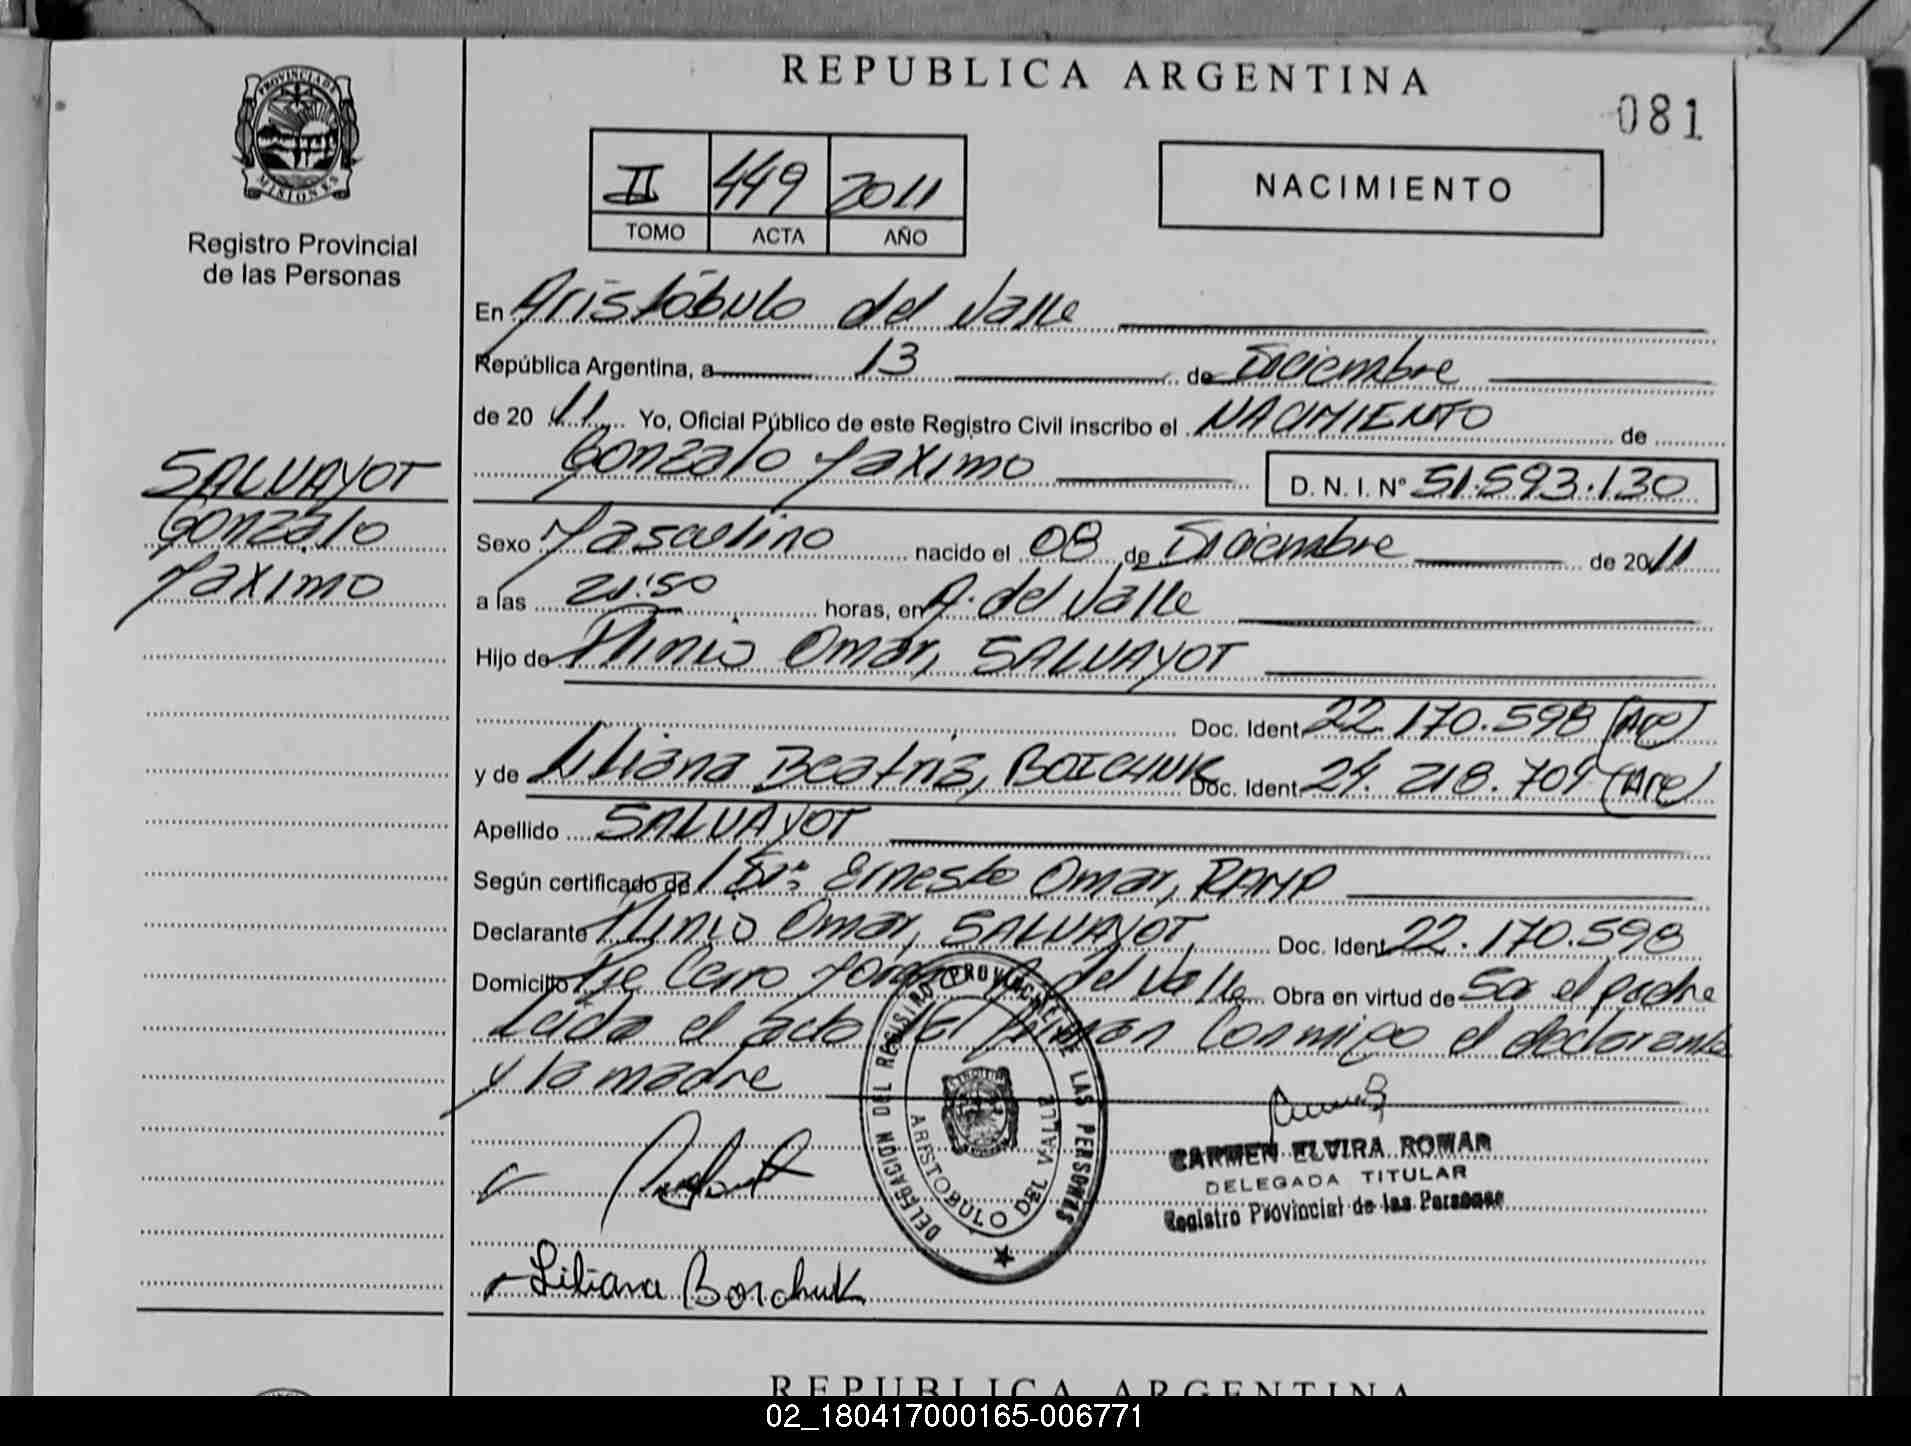 REPUBLICA ARGENTINA
081
PROVINCIA DE MISIONES
Registro Provincial
de las Personas
II 449 2011
TOMO ACTA AÑO
NACIMIENTO
En Aristóbulo del Valle
República Argentina, a 13 de Diciembre
de 2011 Yo, Oficial Público de este Registro Civil inscribo el NACIMIENTO de
Gonzalo Maximo D. N. I. Nº 51.593.130
SALVAYOT
Gonzalo
Maximo
Sexo Masculino nacido el 08 de Diciembre de 2011
a las 21:50 horas, en A. del Valle
Hijo de Plinio Omar, SALVAYOT
Doc. Ident. 22.170.598 (Arg)
y de Liliana Beatris, BOICHUK Doc. Ident. 24.218.709 (Arg)
Apellido SALVAYOT
Según certificado de Dr. Ernesto Omar, RAMP
Declarante Plinio Omar, SALVAYOT, Doc. Ident. 22.170.598
Domicilio Pje Cerro A. del Valle Obra en virtud de Ser el padre
Leída el acta la firman Conmigo el declarante
y la madre
DELEGACION DEL REGISTRO PROVINCIAL DE LAS PERSONAS
ARISTOBULO DEL VALLE
CARMEN ELVIRA ROMAN
DELEGADA TITULAR
Registro Provincial de las Personas
Liliana Boichuk
REPUBLICA ARGENTINA
02_180417000165-006771